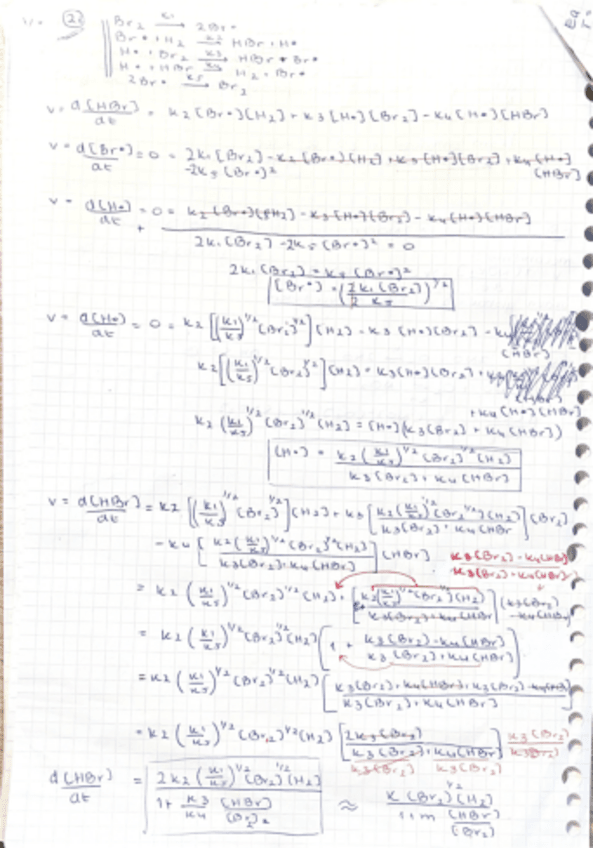 22
Br2 k1→ 2Br•
Br• + H2 k2→ HBr + H•
H• + Br2 k3→ HBr + Br•
H• + HBr k4→ H2 + Br•
2Br• k5→ Br2
v = d[HBr]/dt = k2[Br•][H2] + k3[H•][Br2] - k4[H•][HBr]
v = d[Br•]/dt = 0 = 2k1[Br2] - k2[Br•][H2] + k3[H•][Br2] + k4[H•][HBr]
-2k5[Br•]²
v = d[H•]/dt = 0 = k2[Br•][H2] - k3[H•][Br2] - k4[H•][HBr]
+
2k1[Br2] - 2k5[Br•]² = 0
2k1[Br2] = k5[Br•]²
[Br•] = (2k1[Br2]/2k5)^1/2
v = d[H•]/dt = 0 = k2[(k1/k5)^1/2 [Br2]^1/2][H2] - k3[H•][Br2] - k4
[HBr]
k2[(k1/k5)^1/2 [Br2]^1/2][H2] = k3[H•][Br2]
+ k4[H•][HBr]
k2(k1/k5)^1/2 [Br2]^1/2 [H2] = [H•](k3[Br2] + k4[HBr])
[H•] = k2(k1/k5)^1/2 [Br2]^1/2 [H2] / k3[Br2] + k4[HBr]
v = d[HBr]/dt = k2[(k1/k5)^1/2 [Br2]^1/2][H2] + k3[k2(k1/k5)^1/2 [Br2]^1/2 [H2] / k3[Br2] + k4[HBr]][Br2]
- k4[k2(k1/k5)^1/2 [Br2]^1/2 [H2] / k3[Br2] + k4[HBr]][HBr]
k3[Br2] - k4[HBr]
k3[Br2] - k4[HBr]
= k2(k1/k5)^1/2 [Br2]^1/2 [H2] + [k2(k1/k5)^1/2 [Br2]^1/2 [H2] / k3[Br2] + k4[HBr]](k3[Br2] - k4[HBr])
= k2(k1/k5)^1/2 [Br2]^1/2 [H2] (1 + k3[Br2] - k4[HBr] / k3[Br2] + k4[HBr])
= k2(k1/k5)^1/2 [Br2]^1/2 [H2] [k3[Br2] + k4[HBr] + k3[Br2] - k4[HBr] / k3[Br2] + k4[HBr]]
= k2(k1/k5)^1/2 [Br2]^1/2 [H2] [2k3[Br2] / k3[Br2] + k4[HBr]] k3[Br2] / k3[Br2]
k3[Br2] k3[Br2]
d[HBr]/dt = 2k2(k1/k5)^1/2 [Br2]^1/2 [H2] / 1 + k3/k4 [HBr]/[Br]2 ≈ k[Br2]^1/2 [H2] / 1+m [HBr]/[Br2]